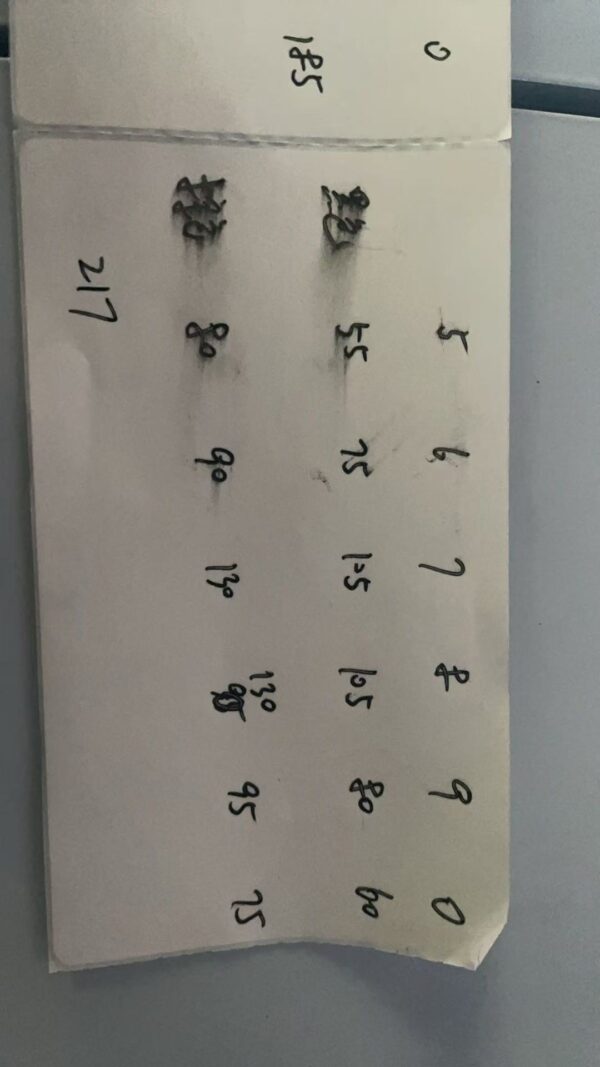 0 5 6 7 8 9 0
黑色 55 75 105 105 80 60
185
130
80 90 130 95 75
217